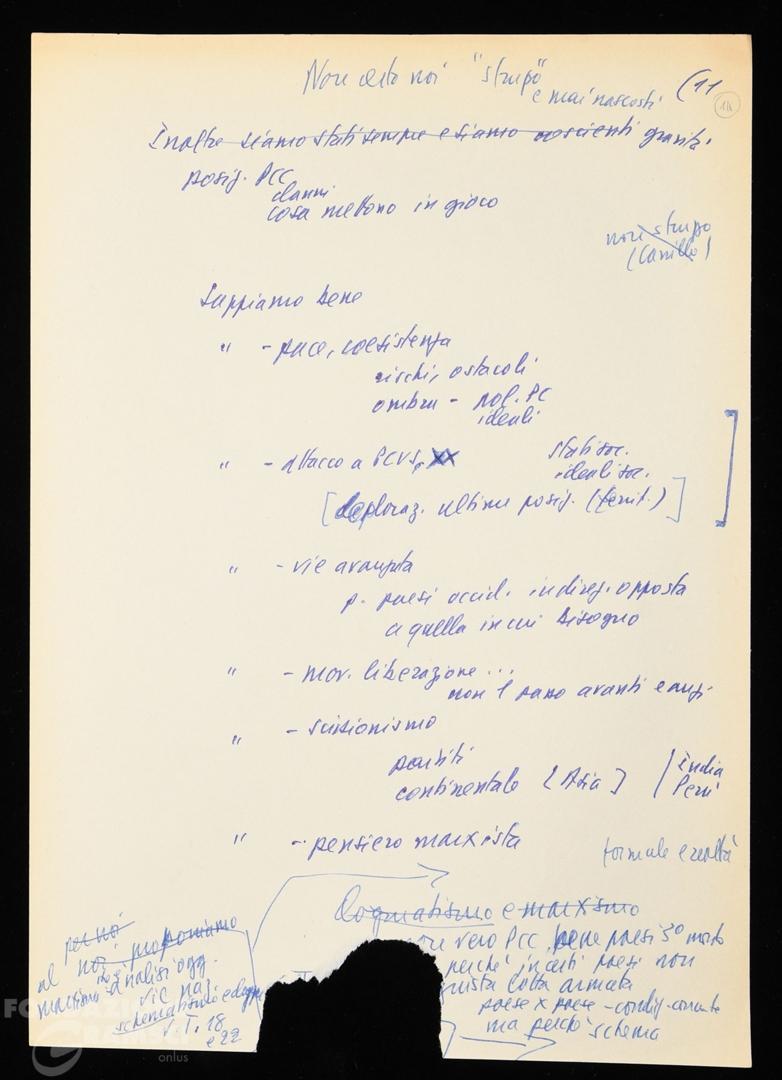 Non certo noi "strupo"
e mai nascosti
(11
11
Inoltre siamo stati sempre e siamo coscienti gravità
posiz. PCC
danni
cosa mettono in gioco
non strupo
(Camillo)
Sappiamo bene
" - pace, coesistenza
rischi, ostacoli
ombra - pol. PC
ideali
" - attacco a PCUS, xx
stati soc.
ideali soc.
[deploraz. ultime posiz. (territ.)]
" - vie avanzata
p. paesi occid. in direz. opposta
a quella in cui bisogno
" - mov. liberazione ...
non 1 passo avanti e anzi
" - scissionismo
partiti
continentale [Asia]
(India
Perù
" - pensiero marxista
formule e realtà
Dogmatismo e marxismo
vero PCC, bene paesi 3° mondo
perché in certi paesi non
giusta lotta armata
paese x paese - condiz. concrete
ma perché schema
per noi
al noi proponiamo
marxismo analisi ogg.
vie naz.
schematismo e
V.T. 18
e 22
FONDAZIONE
GRAMSCI
onlus